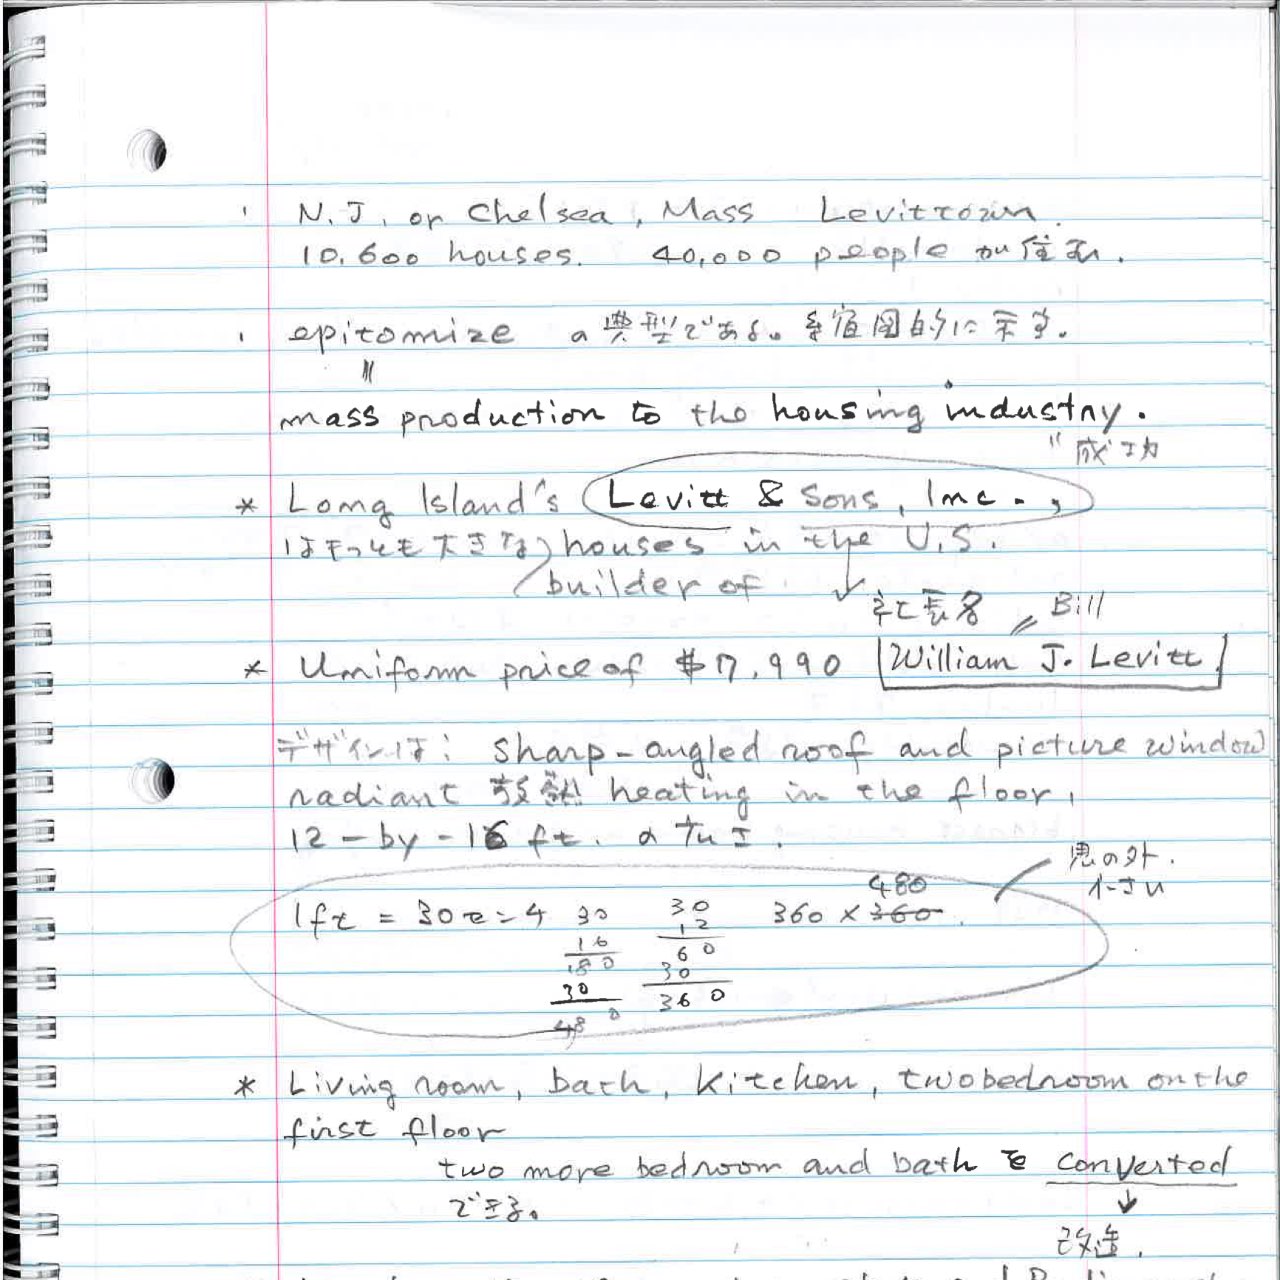 N.J. or Chelsea, Mass Levittown.
10,600 houses. 40,000 people が住む.
epitomize の典型である。を縮図的に示す.
〃
mass production to the housing industry.
〃 成功
* Long Island's Levitt & Sons, Inc.,
はもっとも大きな houses in the U.S.
builder of
社長名 〃 Bill
* Uniform price of $7,990 William J. Levitt.
デザインは: sharp-angled roof and picture window
radiant 放熱 heating in the floor,
12-by-16 ft. の
思の外.
小さい
480
1ft = 30センチ 30 30 360 × 360.
16 12
180 60
30 30
480 360
* Living room, bath, kitchen, two bedroom on the
first floor
two more bedroom and bath を converted
できる。
改造.